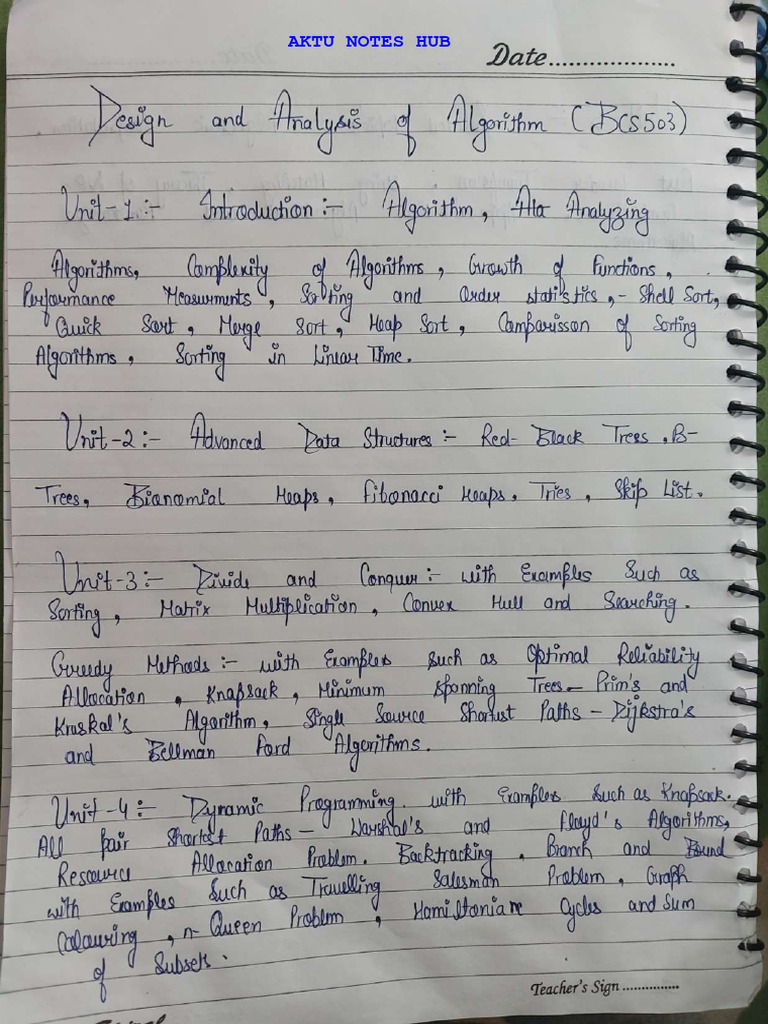 AKTU NOTES HUB
Date....................
Design and Analysis of Algorithm (BCS503)
Unit-1:- Introduction:- Algorithm, Analyzing
Algorithms, Complexity of Algorithms, Growth of Functions,
Performance Measurments, Sorting and Order Statistics,- Shell Sort,
Quick Sort, Merge Sort, Heap Sort, Comparisson of Sorting
Algorithms, Sorting in Linear Time.
Unit-2:- Advanced Data Structures:- Red-Black Trees, B-
Trees, Bionomial Heaps, Fibonacci Heaps, Tries, Skip List.
Unit-3:- Divide and Conquer:- with Examples Such as
Sorting, Matrix Multiplication, Convex Hull and Searching.
Greedy Methods:- with Examples Such as Optimal Reliability
Allocation, Knapsack, Minimum Spanning Trees- Prim's and
Kruskal's Algorithm, Single Source Shortest Paths - Dijkstra's
and Bellman Ford Algorithms.
Unit-4:- Dynamic Programming with Examples Such as Knapsack.
All pair Shortest Paths- Warshal's and Floyd's Algorithms,
Resource Allocation Problem. Backtracking, Branch and Bound
with Examples Such as Travelling Salesman Problem, Graph
Colouring, n-Queen Problem, Hamiltoniane Cycles and Sum
of Subsets.
Teacher's Sign ...............